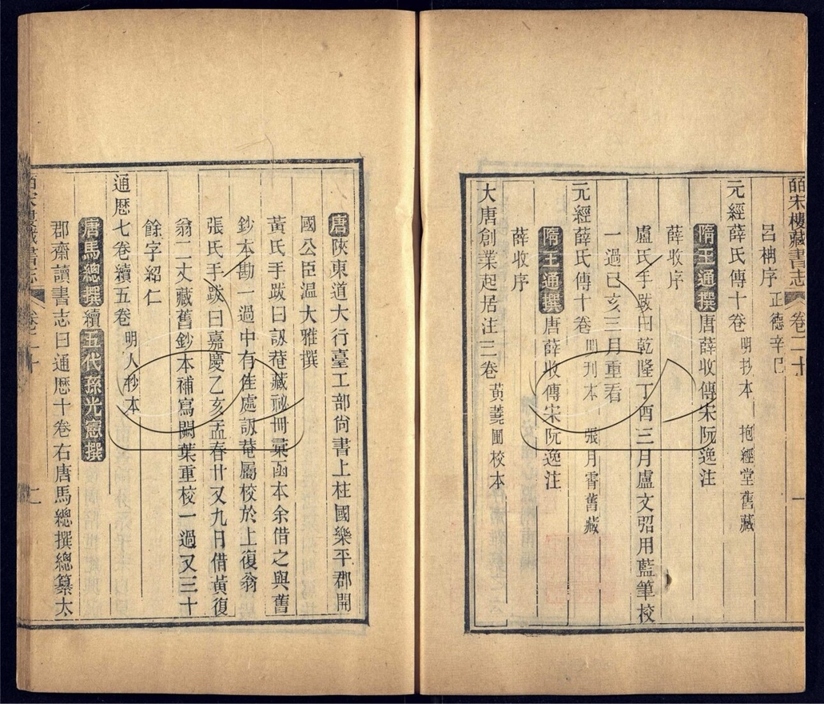 皕宋樓藏書志 卷二十
呂柟序 正德辛巳
元經薛氏傳十卷 明抄本 抱經堂舊藏
隋王通撰唐薛收傳宋阮逸注
薛收序
盧氏手跋曰乾隆丁酉三月盧文弨用藍筆校
一過己亥三月重看
元經薛氏傳十卷 明刋本 張月霄舊藏
隋王通撰唐薛收傳宋阮逸注
薛收序
大唐創業起居注三卷 黃蕘圃校本
唐陜東道大行臺工部尙書上柱國樂平郡開
國公臣溫大雅撰
黃氏手跋曰訒菴藏祕冊彙函本余借之與舊
鈔本勘一過中有佳處訒菴屬校於上復翁
張氏手跋曰嘉慶乙亥孟春廿又九日借黃復
翁二丈藏舊鈔本補寫闕葉重校一過又三十
餘字紹仁
通歷七卷續五卷 明人抄本
唐馬總撰續五代孫光憲撰
郡齋讀書志曰通歷十卷右唐馬總撰總纂太
皕宋樓藏書志 卷二十